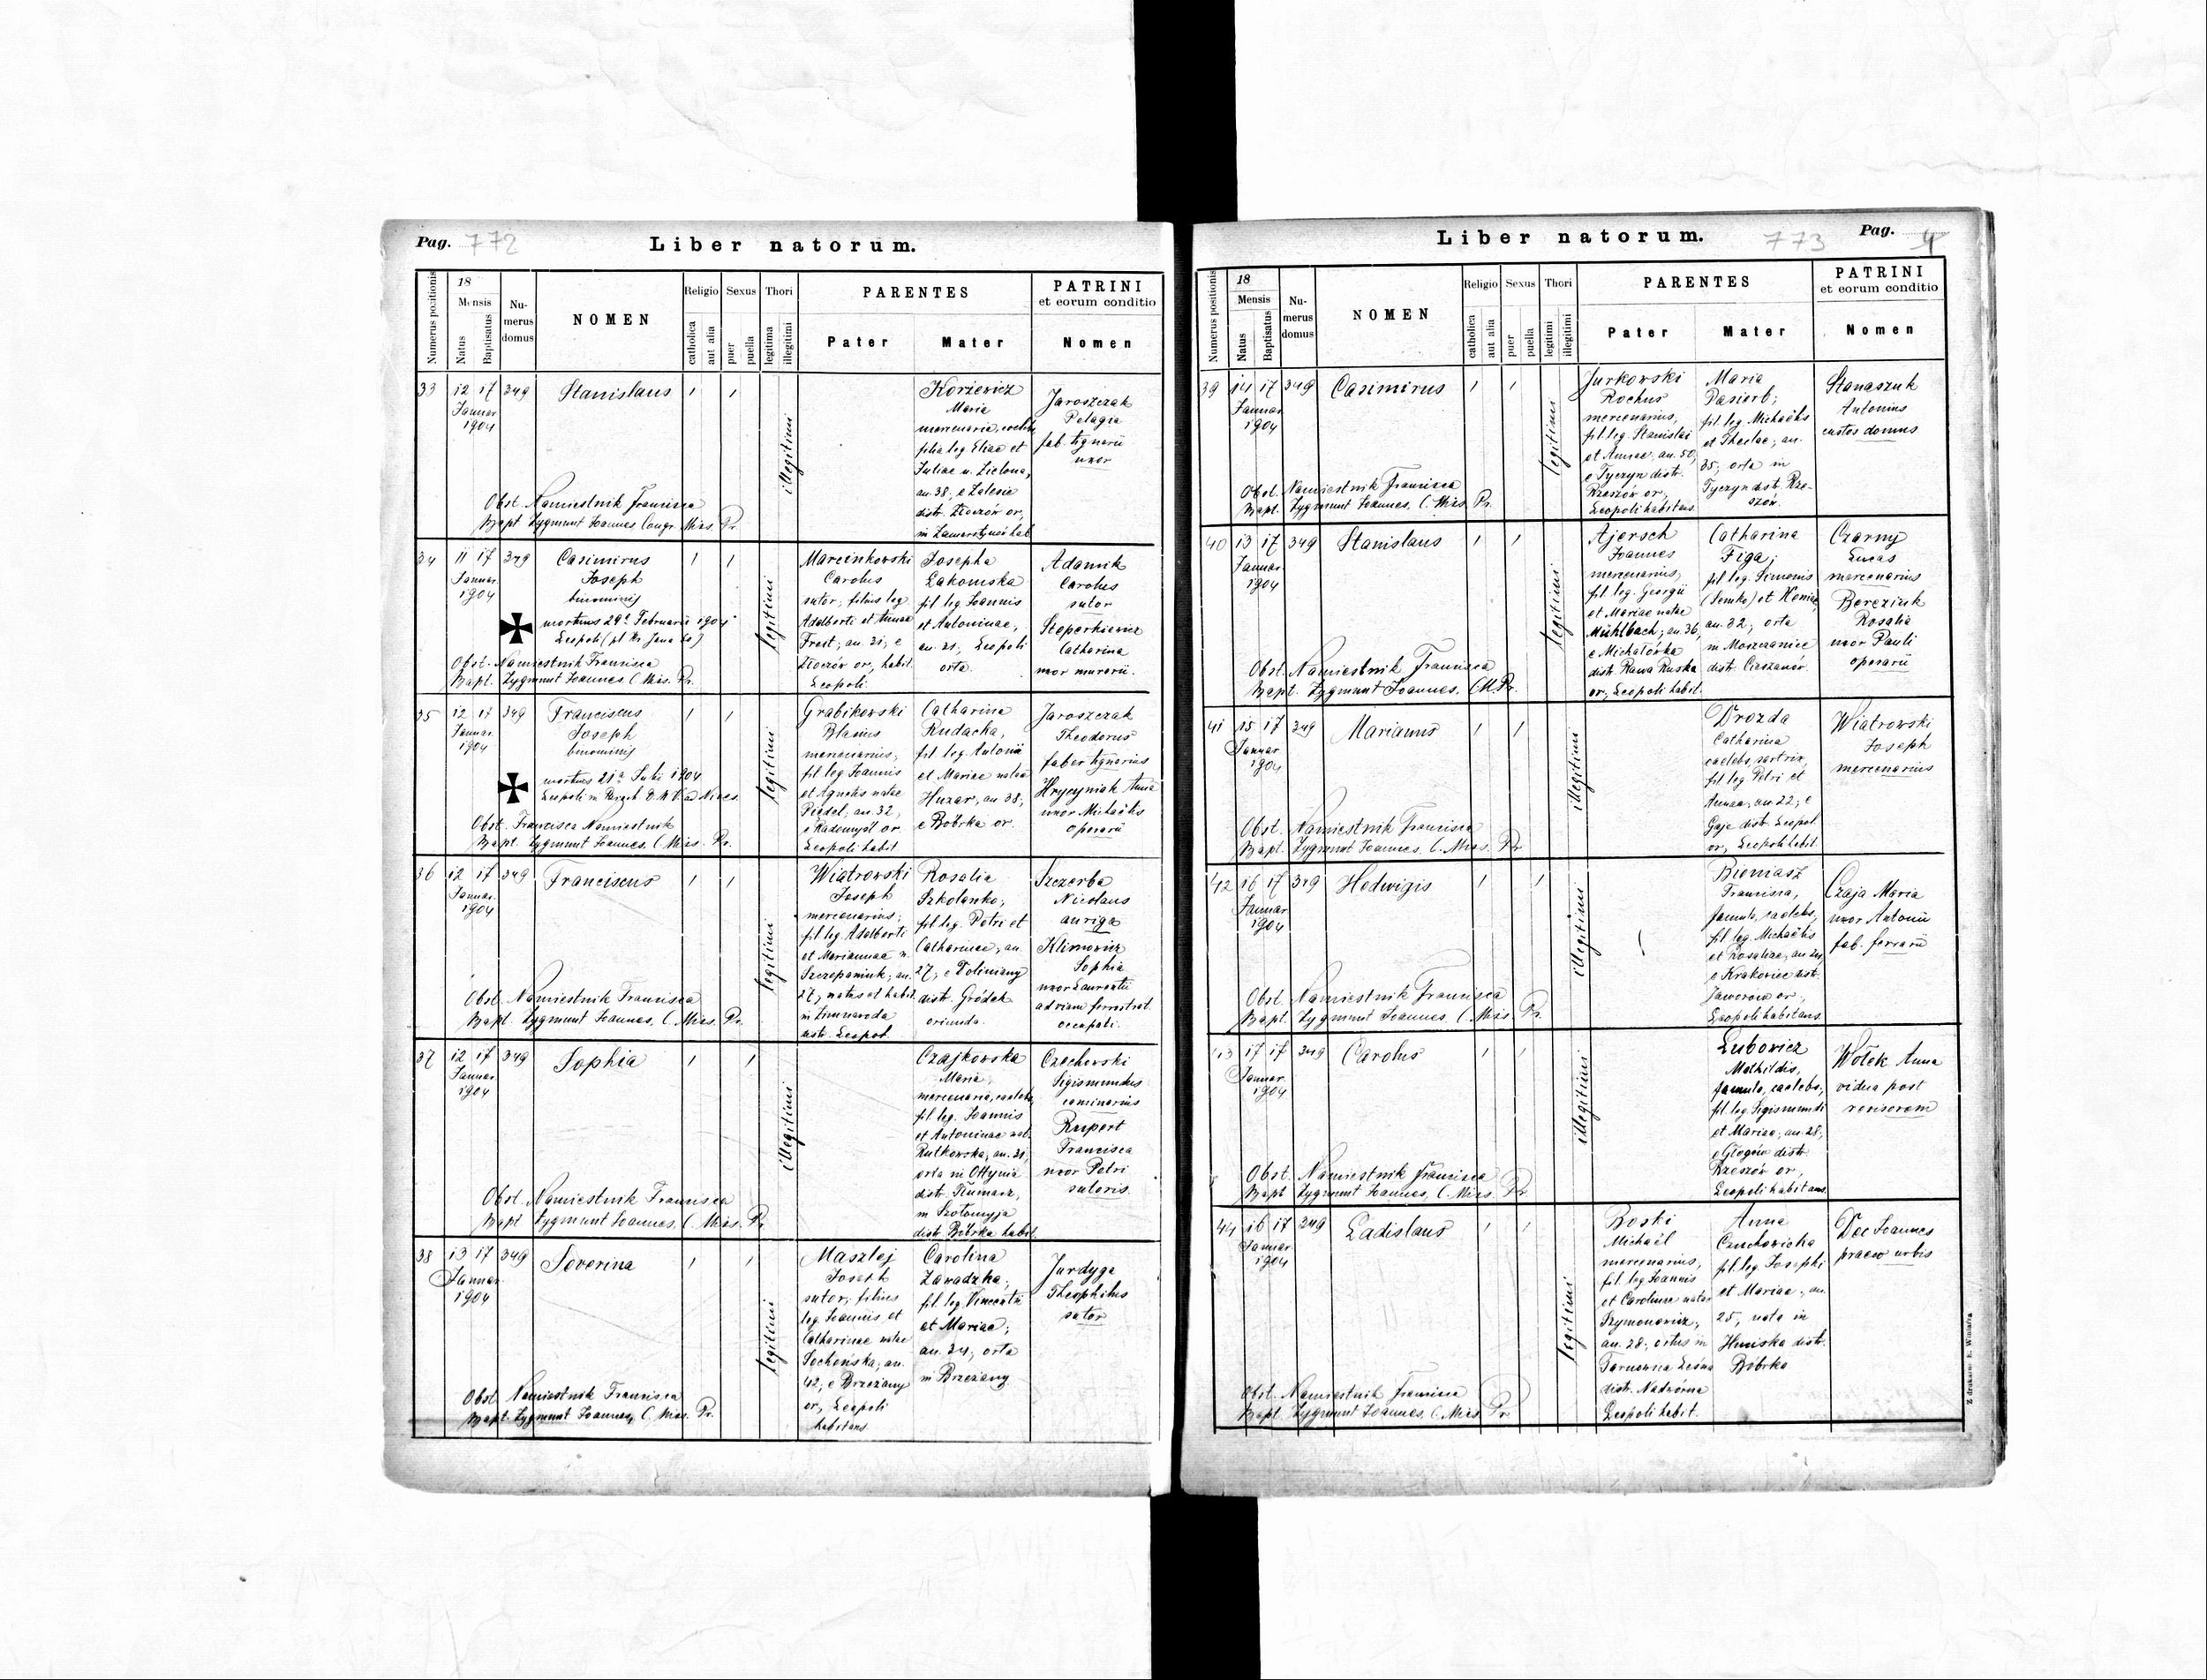 Pag. 772
Liber natorum.
Numerus positionis
18
Mensis
Natus
Baptisatus
Nu-
merus
domus
NOMEN
Religio
catholica
aut alia
Sexus
puer
puella
Thori
legitima
illegitimi
PARENTES
Pater
Mater
PATRINI
et eorum conditio
Nomen
33
12 17
Januar
1904
349
Stanislaus
illegitimi
Korzewicz
Maria
mercenaria,
filia leg Eliae et
Juliae n. Zielona,
an. 38, e Zalesie
distr. Złoczów or,
in Zamarstynów hab
Jaroszczak
Pelagia
fab. tignarii
uxor
Obst. Namiestnik Francisca
Bapt Zygmunt Joannes Congr. Miss. Pr.
34
11 17
Januar.
1904
349
Casimirus
Joseph
binominis
mortuus 29a Februarii 1904
Legitimi
Marcinkowski
Carolus
sutor, filius leg
Adalberti et Annae
an. 31, e
Złoczów or, habit
Leopoli.
Josepha
Łakomska
fil leg. Joannis
et Antoninae,
an. 21, Leopoli
orta.
Adamik
Carolus
sutor
Stoperkiewicz
Catharina
uxor murarii.
Obst. Namiestnik Francisca
Bapt. Zygmunt Joannes C. Miss. Pr.
35
12 17
Januar.
1904
349
Franciscus
Joseph
binominis
mortuus 21a Julii 1904
Legitimi
Grabikowski
Blasius
mercenarius,
fil leg Joannis
et Agnetis natae
an. 32,
e Radomyśl or
Leopoli habit
Catharina
Rudacka,
fil. leg. Antonii
et Mariae natae
Huzar, an 38,
e Bóbrka or.
Jaroszczak
Theodorus
faber tignarius
Hrycyniak Anna
uxor Michaëlis
operarii
Obst. Francisca Namiestnik
Bapt. Zygmunt Joannes, C. Miss. Pr.
36
12 17
Januar.
1904
349
Franciscus
Legitimi
Wiatrowski
Joseph
mercenarius,
fil. leg. Adalberti
et Mariannae n.
Szczepaniuk, an.
27, natus et habit
in Zimnawoda
distr. Leopol.
Rosalia
Szkolanko,
fil. leg. Petri et
Catharinae, an.
27, e Doliniany
distr. Gródek
oriunda.
Szczerba
Nicolaus
auriga
Klimowicz
Sophia
uxor Laurentii
ad viam ferrostrat.
occupati.
Obst. Namiestnik Francisca
Bapt. Zygmunt Joannes, C. Miss. Pr.
37
12 17
Januar.
1904
349
Sophia
illegitimi
Czajkowska
Maria,
mercenaria, caelebs,
fil. leg. Joannis
et Antoninae nat.
Rutkowska, an. 21,
orta in Ottynia
distr. Tłumacz,
in Szołomyja
distr. Bóbrka habit.
Czechowski
Sigismundus
caminarius
Rupert
Francisca
uxor Petri
sutoris.
Obst. Namiestnik Francisca
Bapt Zygmunt Joannes, C. Miss. Pr.
38
13 17
Januar.
1904
349
Severina
Legitimi
Maszlej
Joseph
sutor, filius
leg. Joannis et
Catharinae natae
Sochońska, an.
42, e Brzeżany
or, Leopoli
habitans
Carolina
Zawadzka,
fil. leg. Vincentii
et Mariae,
an. 24, orta
in Brzeżany
Jurdyga
Theophilus
sutor
Obst. Namiestnik Francisca
Bapt. Zygmunt Joannes, C. Miss. Pr.
Liber natorum.
773
Pag. 4
Numerus positionis
18
Mensis
Natus
Baptisatus
Nu-
merus
domus
NOMEN
Religio
catholica
aut alia
Sexus
puer
puella
Thori
legitimi
illegitimi
PARENTES
Pater
Mater
PATRINI
et eorum conditio
Nomen
39
14 17
Januar
1904
349
Casimirus
Legitimi
Jurkowski
Rochus
mercenarius,
fil leg. Stanislai
et Annae, an. 50,
e Tyczyn distr.
Rzeszów or,
Leopoli habitans
Maria
Pasiorb,
fil. leg. Michaëlis
et Theclae, an.
35, orta in
Tyczyn distr. Rze-
szów.
Stanaszuk
Antonius
custos domus
Obst. Namiestnik Francisca
Bapt. Zygmunt Joannes, C. Miss. Pr.
40
13 17
Januar
1904
349
Stanislaus
Legitimi
Ajersch
Joannes
mercenarius,
fil. leg. Georgii
et Mariae natae
Mühlbach, an. 36,
e Michałówka
distr. Rawa Ruska
or, Leopoli habit.
Catharina
Figa,
fil leg. Simonis
(Semko) et
an. 32, orta
in Moszczanica
distr. Cieszanów.
Czarny
Lucas
mercenarius
Bereziuk
Rosalia
uxor Pauli
operarii
Obst. Namiestnik Francisca
Bapt. Zygmunt Joannes. C. M. Pr.
41
15 17
Januar
1904
349
Marianus
illegitimi
Drozda
Catharina
caelebs, sartrix,
fil leg Petri et
Annae, an 22, e
Gaje distr. Leopol.
or, Leopoli habit.
Wiatrowski
Joseph
mercenarius
Obst. Namiestnik Francisca
Bapt. Zygmunt Joannes, C. Miss. Pr
42
16 17
Januar
1904
349
Hedwigis
illegitimi
Bieniasz
Francisca,
famula, caelebs,
fil leg. Michaëlis
et Rosaliae, an
e Krakowiec dist.
Jaworów or,
Leopoli habitans.
Czaja Maria
uxor Antonii
fab. ferrarii
Obst. Namiestnik Francisca
Bapt. Zygmunt Joannes, C. Miss. Pr.
43
17 17
Januar
1904
349
Carolus
illegitimi
Lubowicz
Mathildis,
famula, caelebs,
fil. leg. Sigismundi
et Mariae, an. 28,
e Głogów distr
Rzeszów or,
Leopoli habitans.
Wołek Anna
vidua post
revisorem
Obst. Namiestnik Francisca
Bapt Zygmunt Joannes, C. Miss. Pr
44
16 17
Januar
1904
349
Ladislaus
Legitimi
Boski
Michaël
mercenarius,
fil. leg. Joannis
et Carolinae natae
Szymonowicz,
an. 28, ortus in
Tarnowica Leśna
distr. Nadwórna
Leopoli habit.
Anna
Czuchowicka
fil. leg. Josephi
et Mariae, an.
25, nata in
Huniska distr.
Bóbrka
Dec Joannes
praeco urbis
Obst. Namiestnik Francisca
Bapt. Zygmunt Joannes, C. Miss. Pr
Z drukarni E. Winiarza